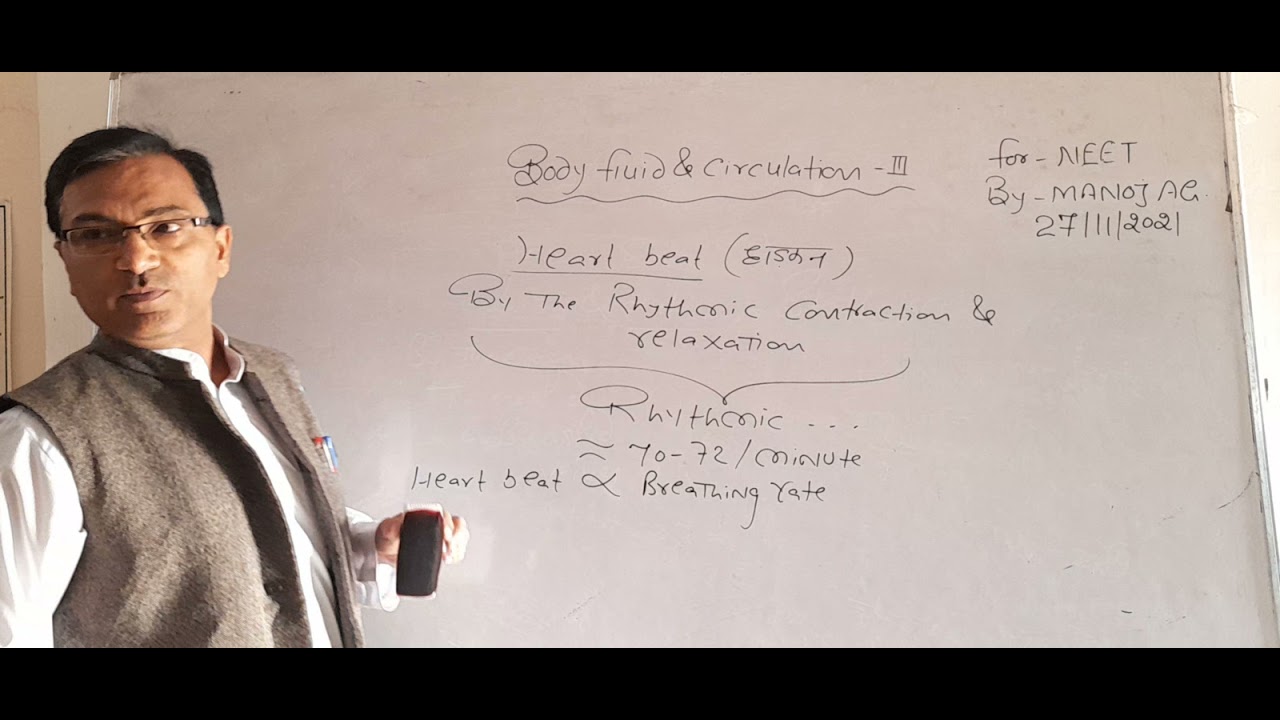 Body fluid & Circulation - III
for - NEET
By - MANOJ AG.
27/11/2021
Heart beat (धड़कन)
By The Rhythmic Contraction &
relaxation
Rhythmic ...
≈ 70-72/minute
Heart beat ∝ Breathing rate